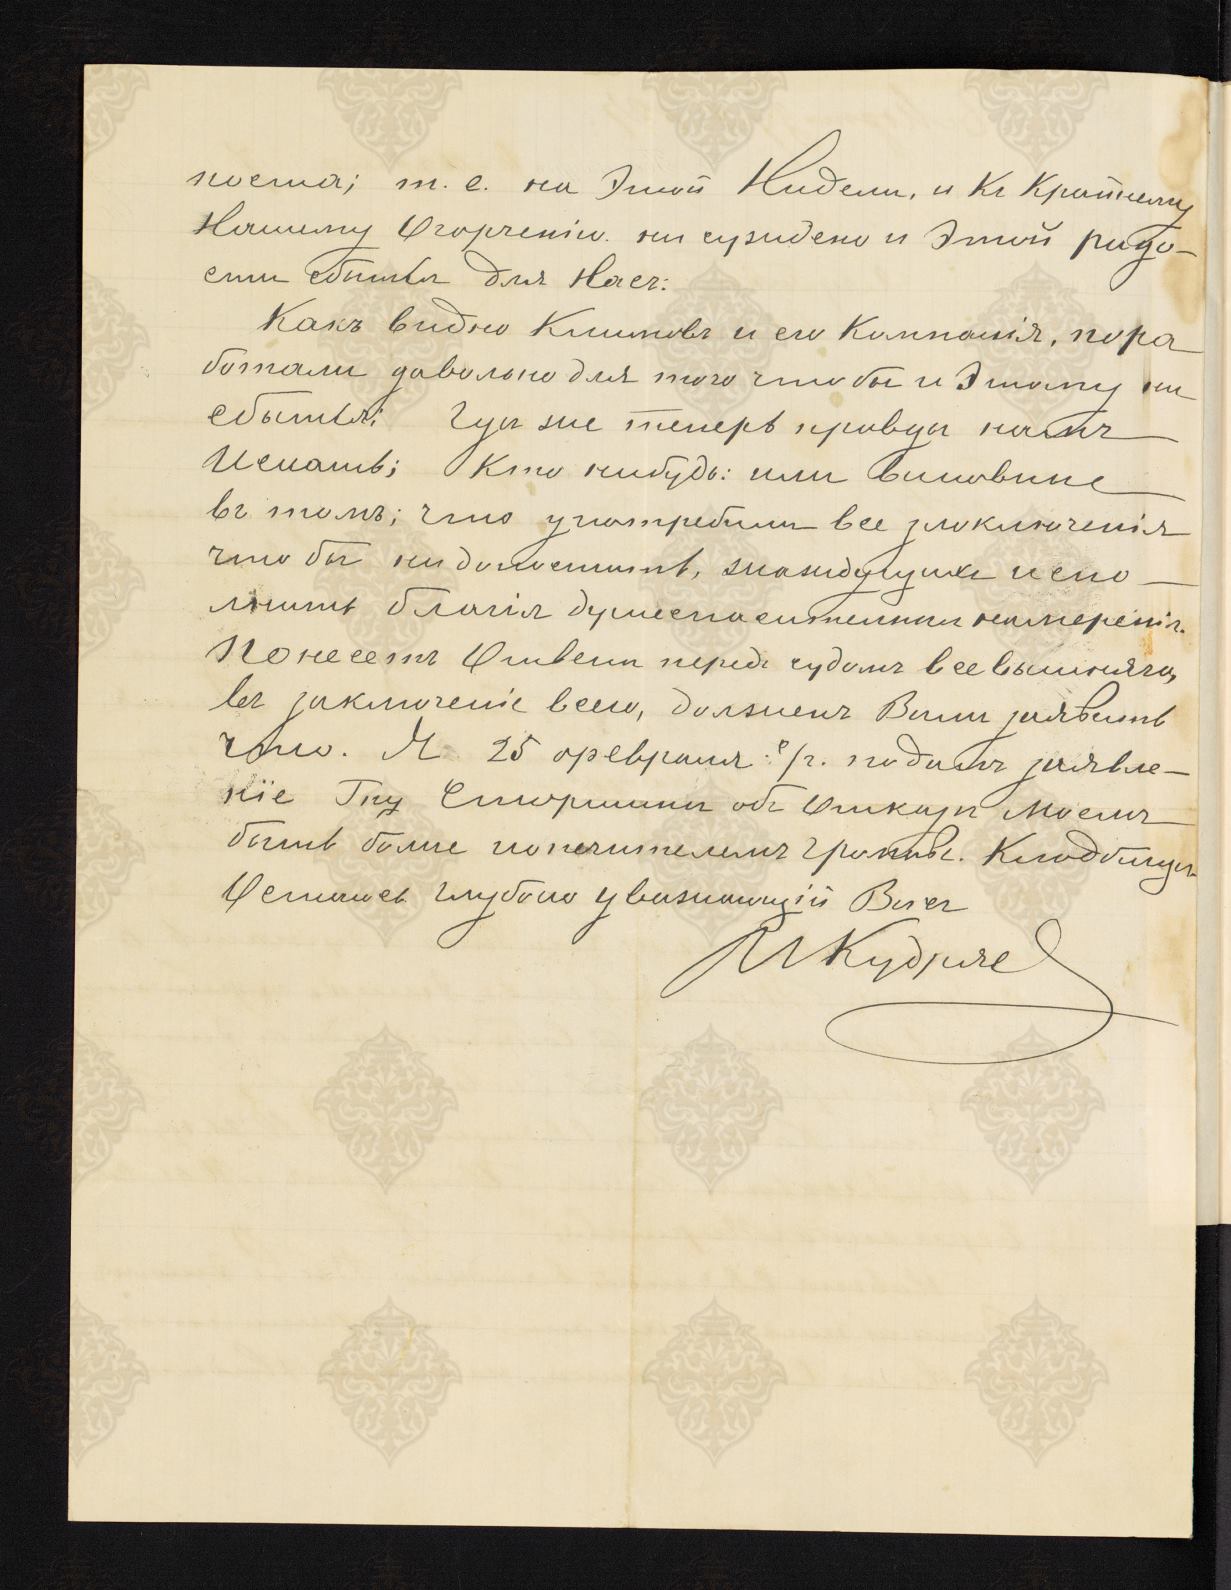 поста; т. е. на Этой Нидели, и Къ Крайнему
Нашему Огорченію. ни сузидено и Этой радо-
сти сбытьсь для Насъ:
Какъ видно Климовъ и его Компанія, пора
ботали давольно для того что бы и Этому ни
сбыться: Гдѣ же теперь правды намъ
Искать; Кто нибудь: или виновные
въ томъ; что употребили все злоключенія
что бы ни допостить, жаждущихъ испо-
лнить благія душеспасительныи намеренія.
Понесетъ Ответи передъ судомъ всевышняго,
въ заключеніе всего, долженъ Вамъ заявить
что. Я 25 февраля с/г. подалъ заявле-
ніе Гну об Отказѣ Моемъ
быть более попечителемъ Кладбищъ
Остаюсь глубоко уважающій Васъ
И Кудряе